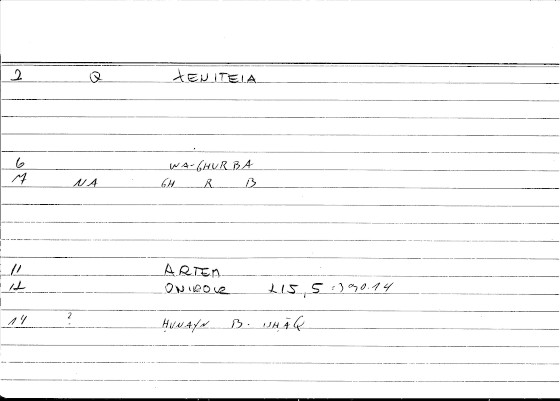 2 Q XENITEIA
6 WA-GHURBA
7 NA GH R B
11 ARTEM
12 ONIROCR 215,5 : 390.14
14 ? ḤUNAYN B. ISḤĀQ